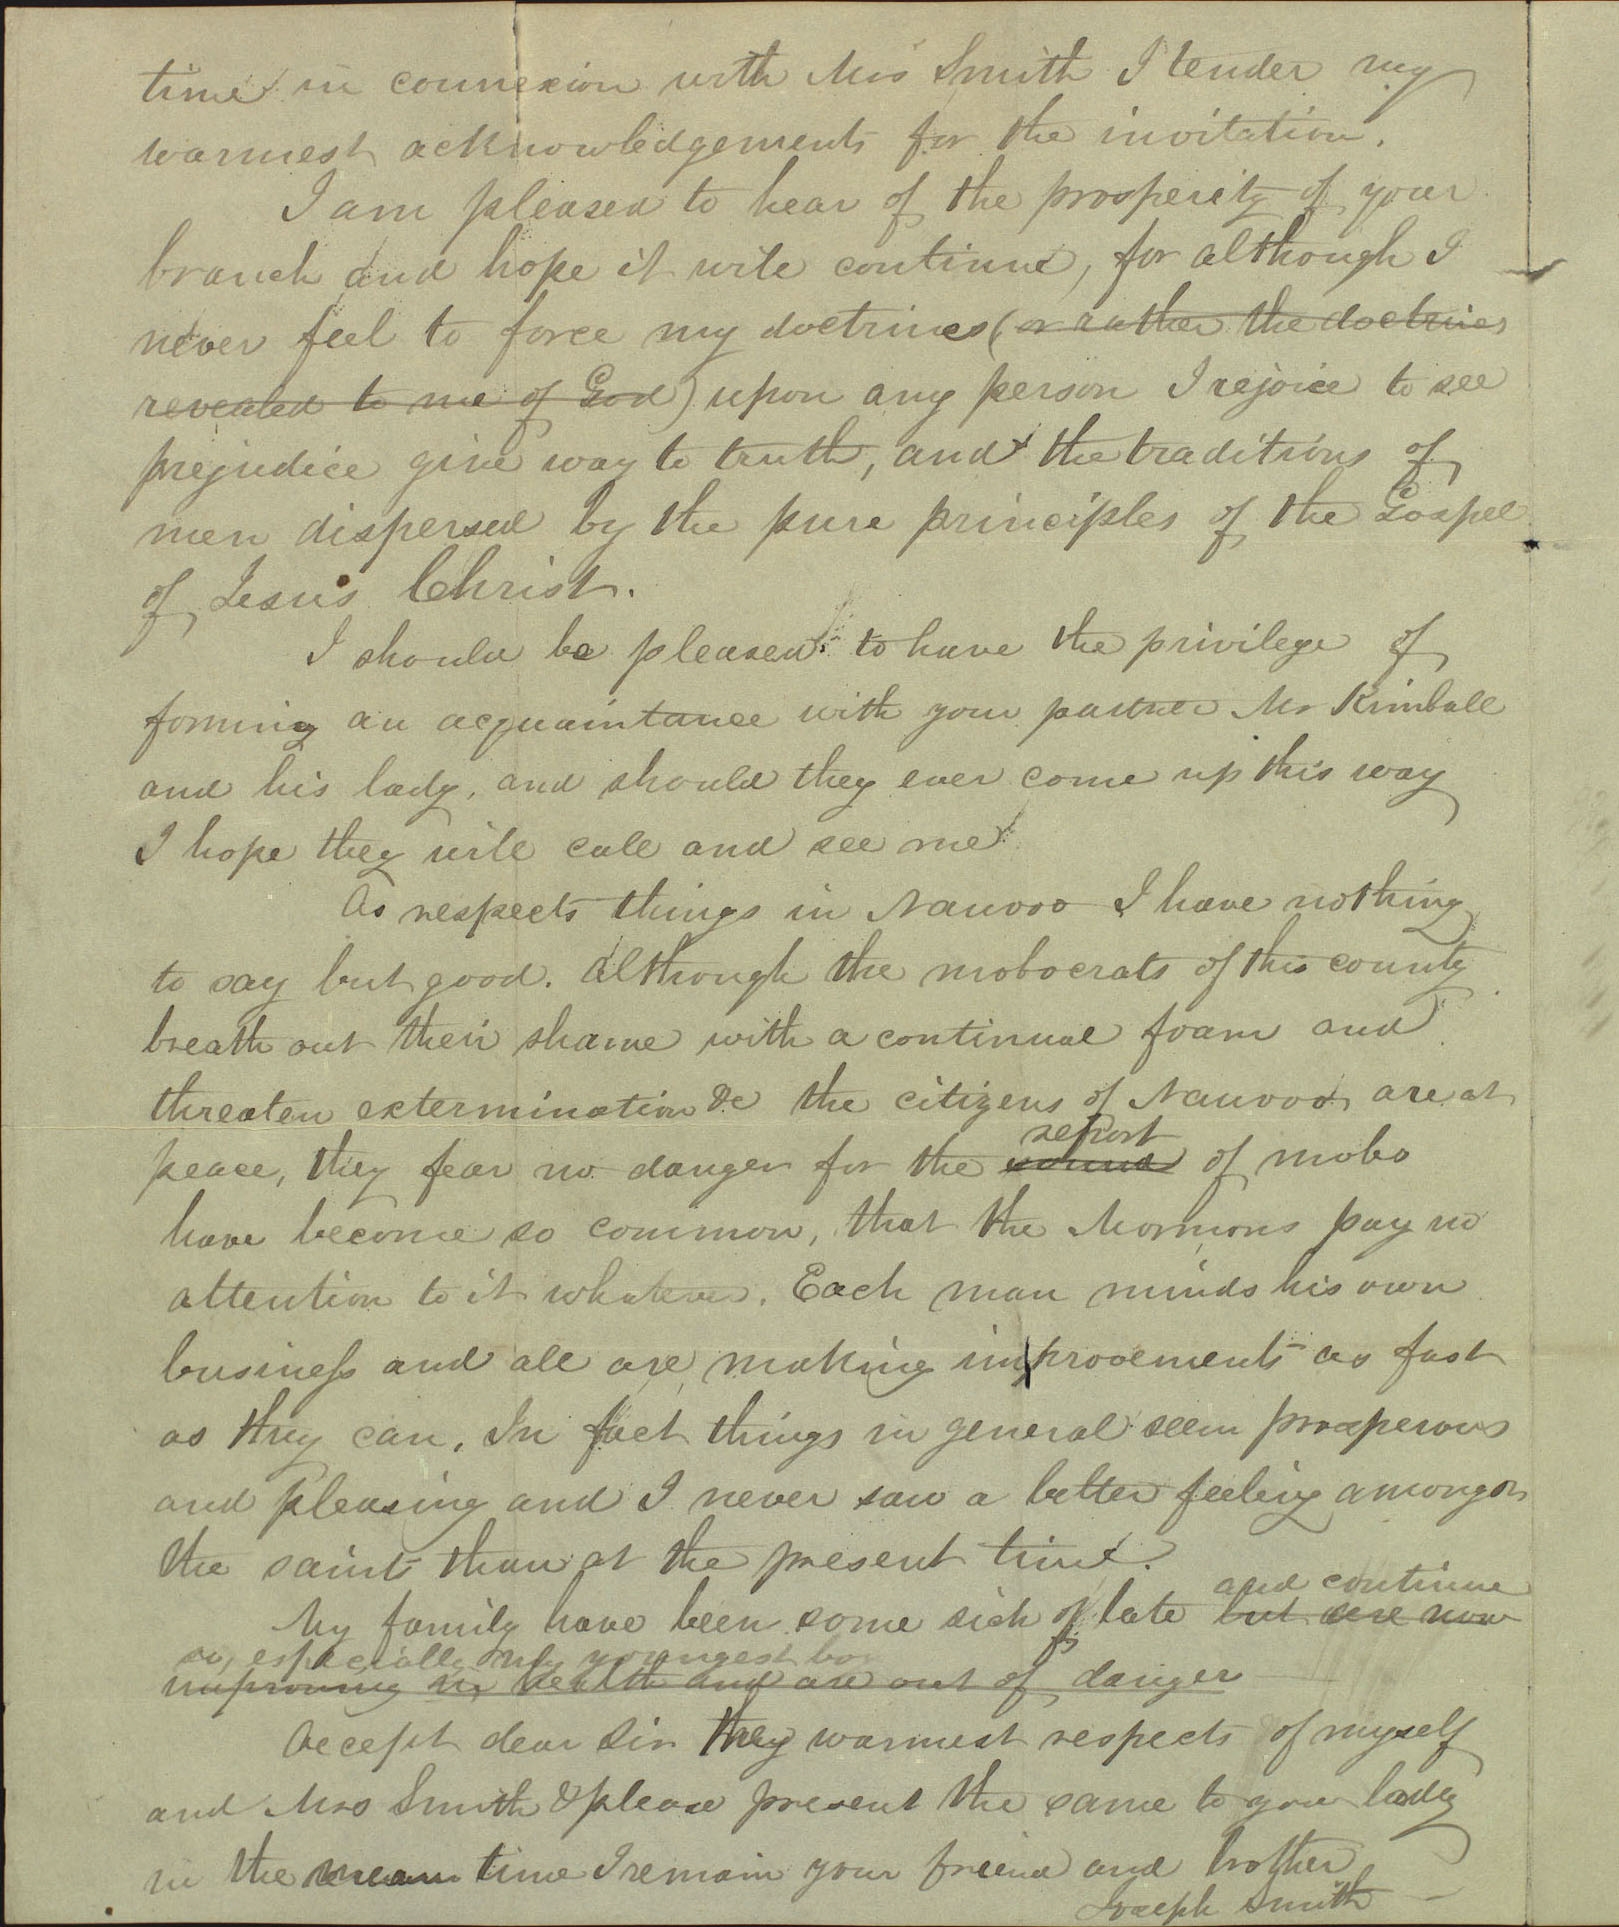 time in connexion with Mrs Smith I tender my
warmest acknowledgements for the invitation.
I am pleased to hear of the prosperity of your
branch and hope it will continue, for although I
never feel to force my doctrines (or rather the doctrines
revealed to me of God) upon any person I rejoice to see
prejudice give way to truth, and the traditions of
men dispersed by the pure principles of the Gospel
of Jesus Christ.
I should be pleased to have the privilege of
forming an acquaintance with your partner Mr Kimball
and his lady, and should they ever come up this way
I hope they will call and see me
As respects things in Nauvoo I have nothing
to say but good. although the mobocrats of this county
breath out their shame with a continual foam and
threaten extermination &c the citizens of Nauvoo are at
report
peace, they fear no danger for the sound of mobs
have become so common, that the Mormons pay no
attention to it whatever. Each man minds his own
business and all are making improvements as fast
as they can. In fact things in general seem prosperous
and pleasing and I never saw a better feeling amongst
the saints than at the present time.
and continue
My family have been some sick of late but are now
so, especially my youngest boy
improving in health and are out of danger
Accept dear Sir the warmest respects of myself
and Mrs Smith & please present the same to your lady
in the mean time I remain your friend and brother
Joseph Smith